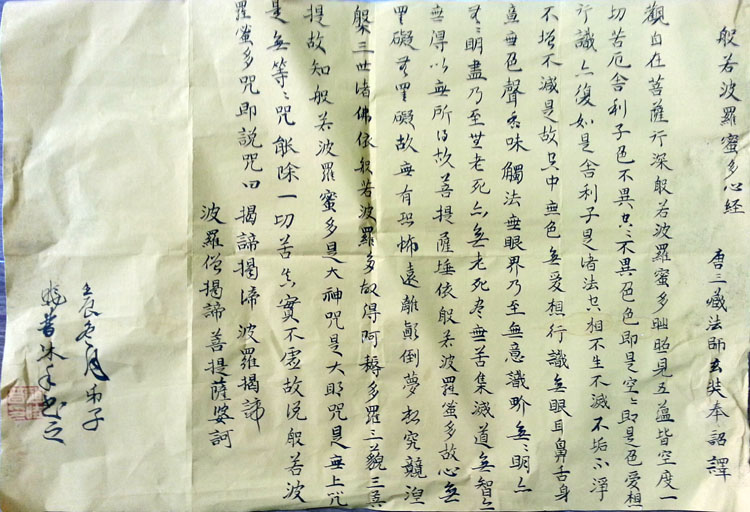 般若波羅蜜多心経
唐三藏法師玄奘奉詔譯
觀自在菩薩行深般若波羅蜜多時照見五蘊皆空度一
切苦厄舍利子色不異空空不異色色即是空空即是色受想
行識亦復如是舍利子是諸法空相不生不滅不垢不淨
不增不減是故空中無色無受想行識無眼耳鼻舌身
意無色聲香味觸法無眼界乃至無意識界無無明亦
無無明盡乃至無老死亦無老死盡無苦集滅道無智亦
無得以無所得故菩提薩埵依般若波羅蜜多故心無
罣礙無罣礙故無有恐怖遠離顛倒夢想究竟涅
槃三世諸佛依般若波羅多故得阿耨多羅三藐三菩
提故知般若波羅蜜多是大神咒是大明咒是無上咒
是無等等咒能除一切苦真實不虛故說般若波
羅蜜多咒即說咒曰 揭諦揭諦 波羅揭諦
波羅僧揭諦 菩提薩婆訶
壬辰冬月弟子
沐手書之